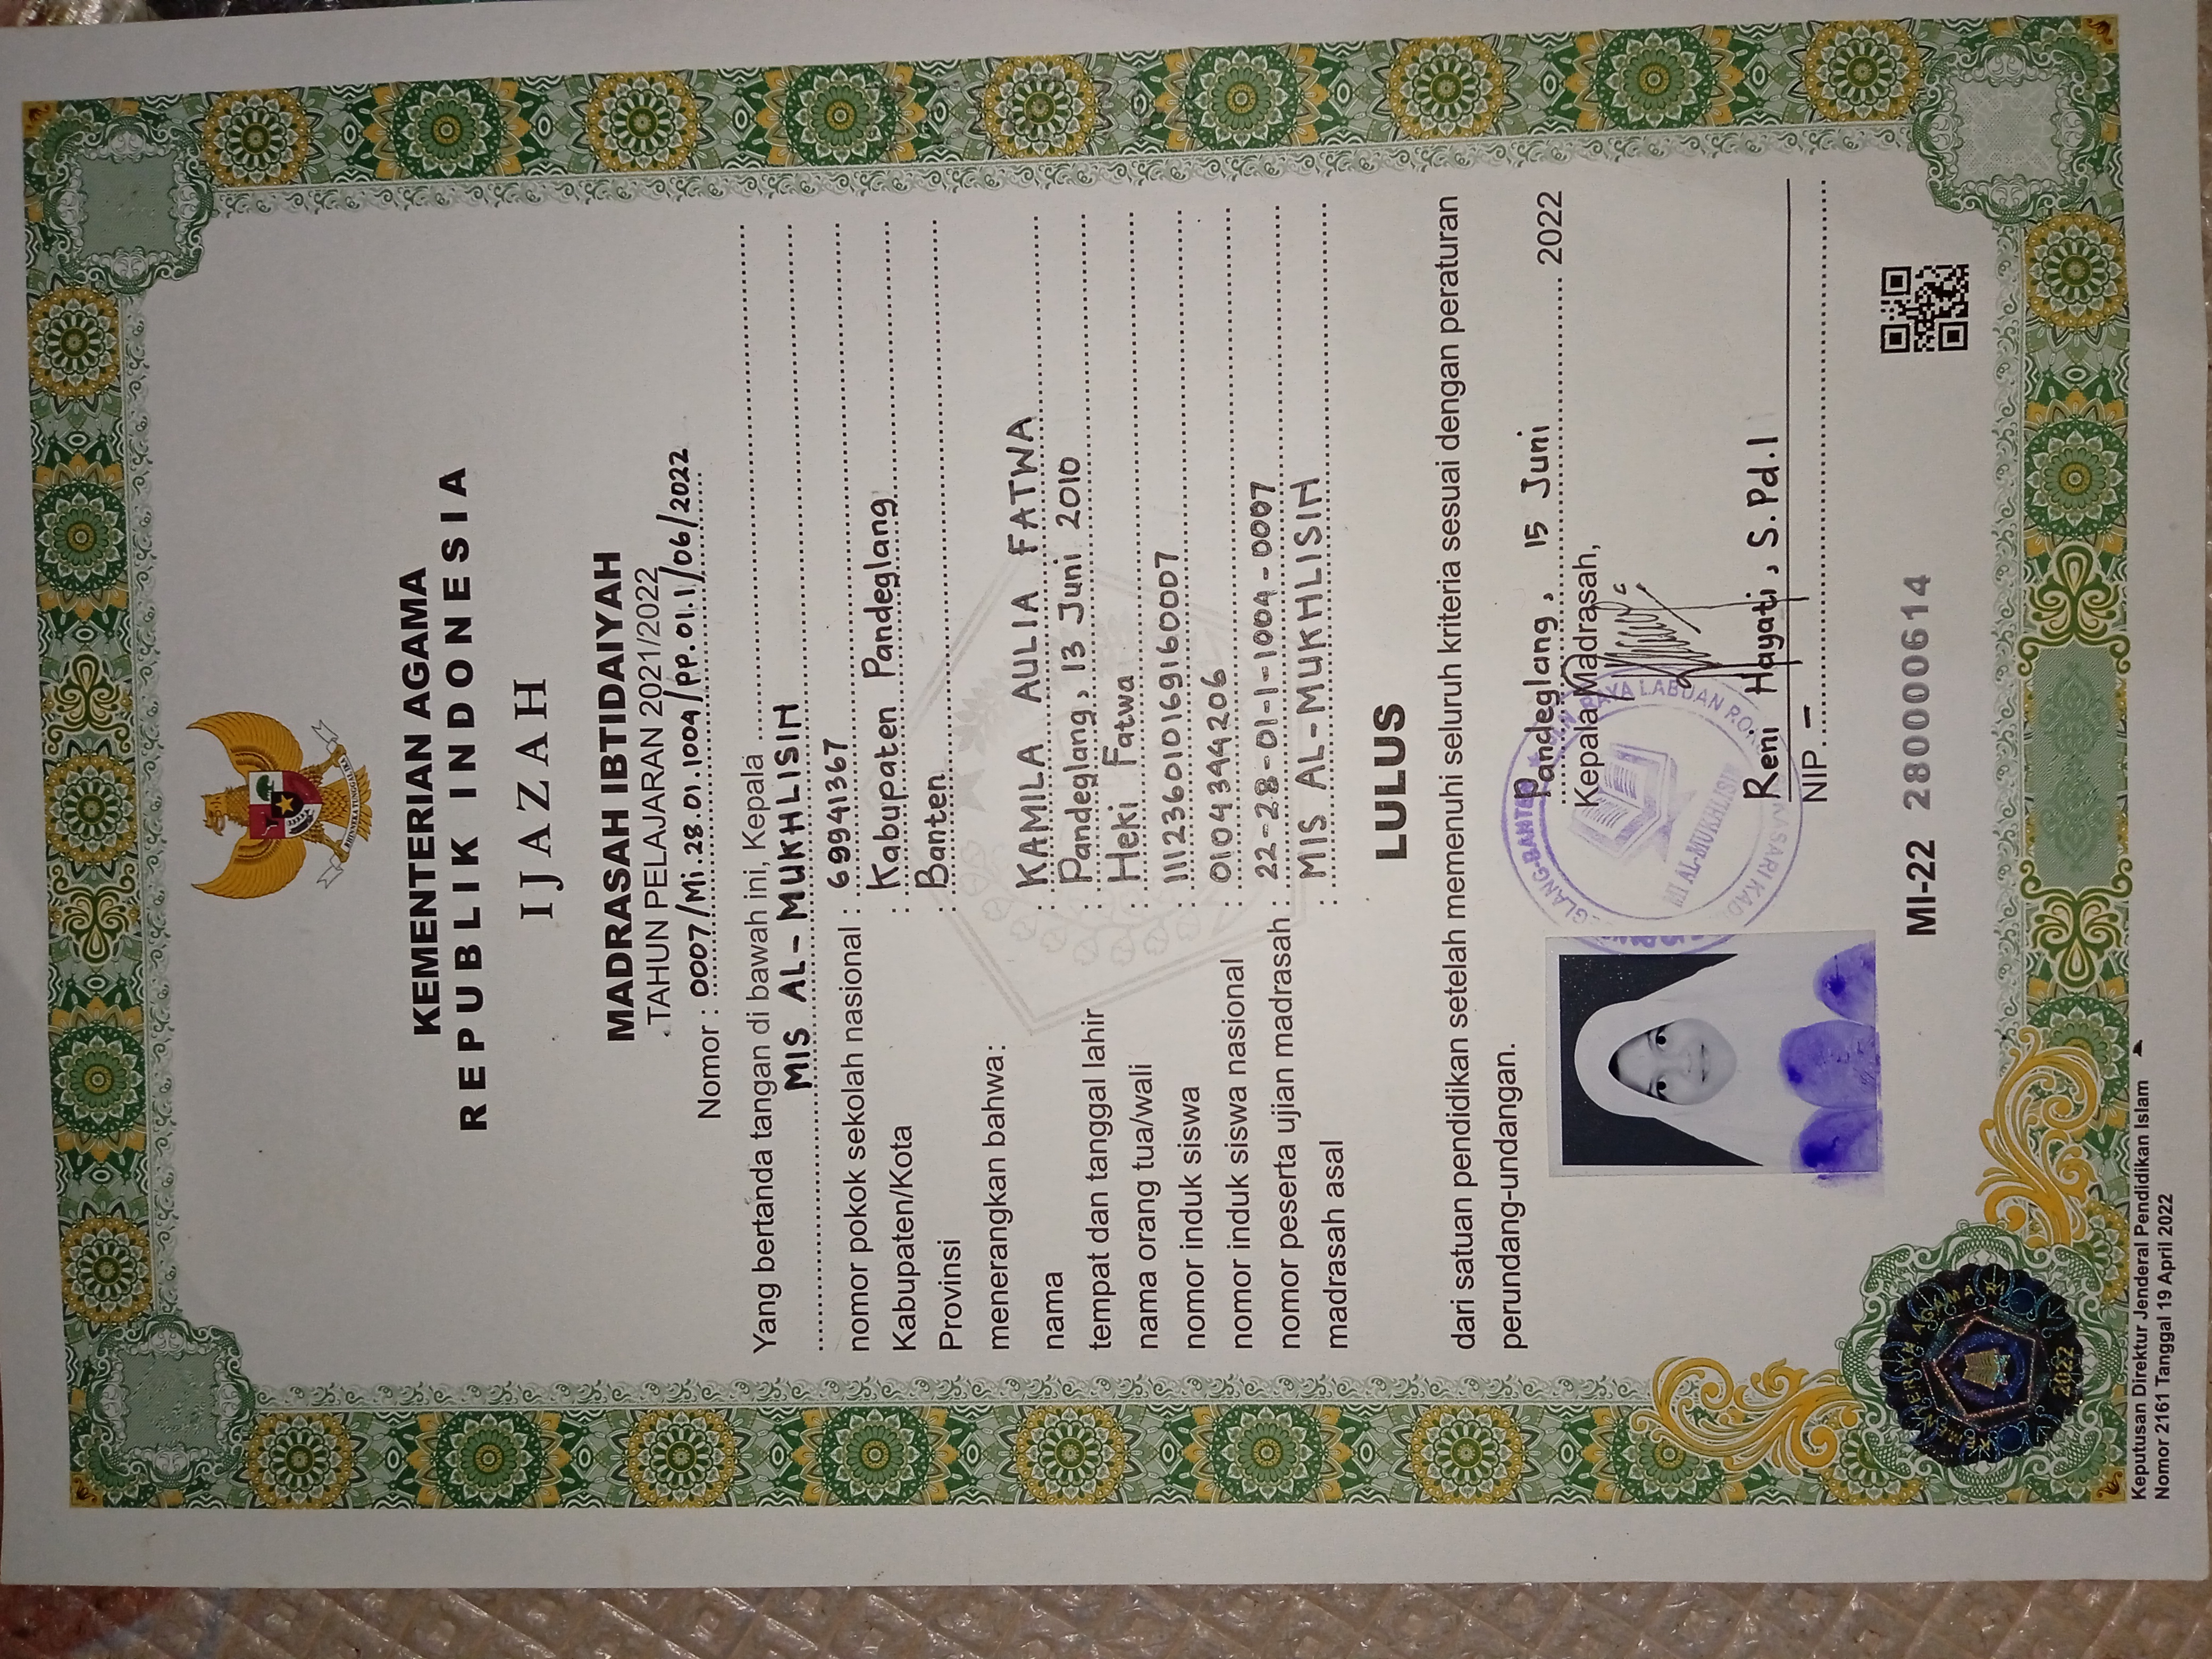 KEMENTERIAN AGAMA
REPUBLIK INDONESIA
IJAZAH
MADRASAH IBTIDAIYAH
TAHUN PELAJARAN 2021/2022
Nomor : 0007/Mi.28.01.1004/PP.01.1/06/2022
Yang bertanda tangan di bawah ini, Kepala
MIS AL-MUKHLISIH
nomor pokok sekolah nasional : 69941367
Kabupaten/Kota : Kabupaten Pandeglang
Provinsi : Banten
menerangkan bahwa:
nama : KAMILA AULIA FATWA
tempat dan tanggal lahir : Pandeglang, 13 Juni 2010
nama orang tua/wali : Heki Fatwa
nomor induk siswa : 111236010169160007
nomor induk siswa nasional : 0104344206
nomor peserta ujian madrasah : 22-28-01-1-1004-0007
madrasah asal : MIS AL-MUKHLISIH
LULUS
dari satuan pendidikan setelah memenuhi seluruh kriteria sesuai dengan peraturan
perundang-undangan.
Pandeglang, 15 Juni 2022
Kepala Madrasah,
MI AL-MUKHLISIH
Reni Hayati, S.Pd.I
NIP. -
MI-22 280000614
KEMENTERIAN AGAMA RI
2022
Keputusan Direktur Jenderal Pendidikan Islam
Nomor 2161 Tanggal 19 April 2022